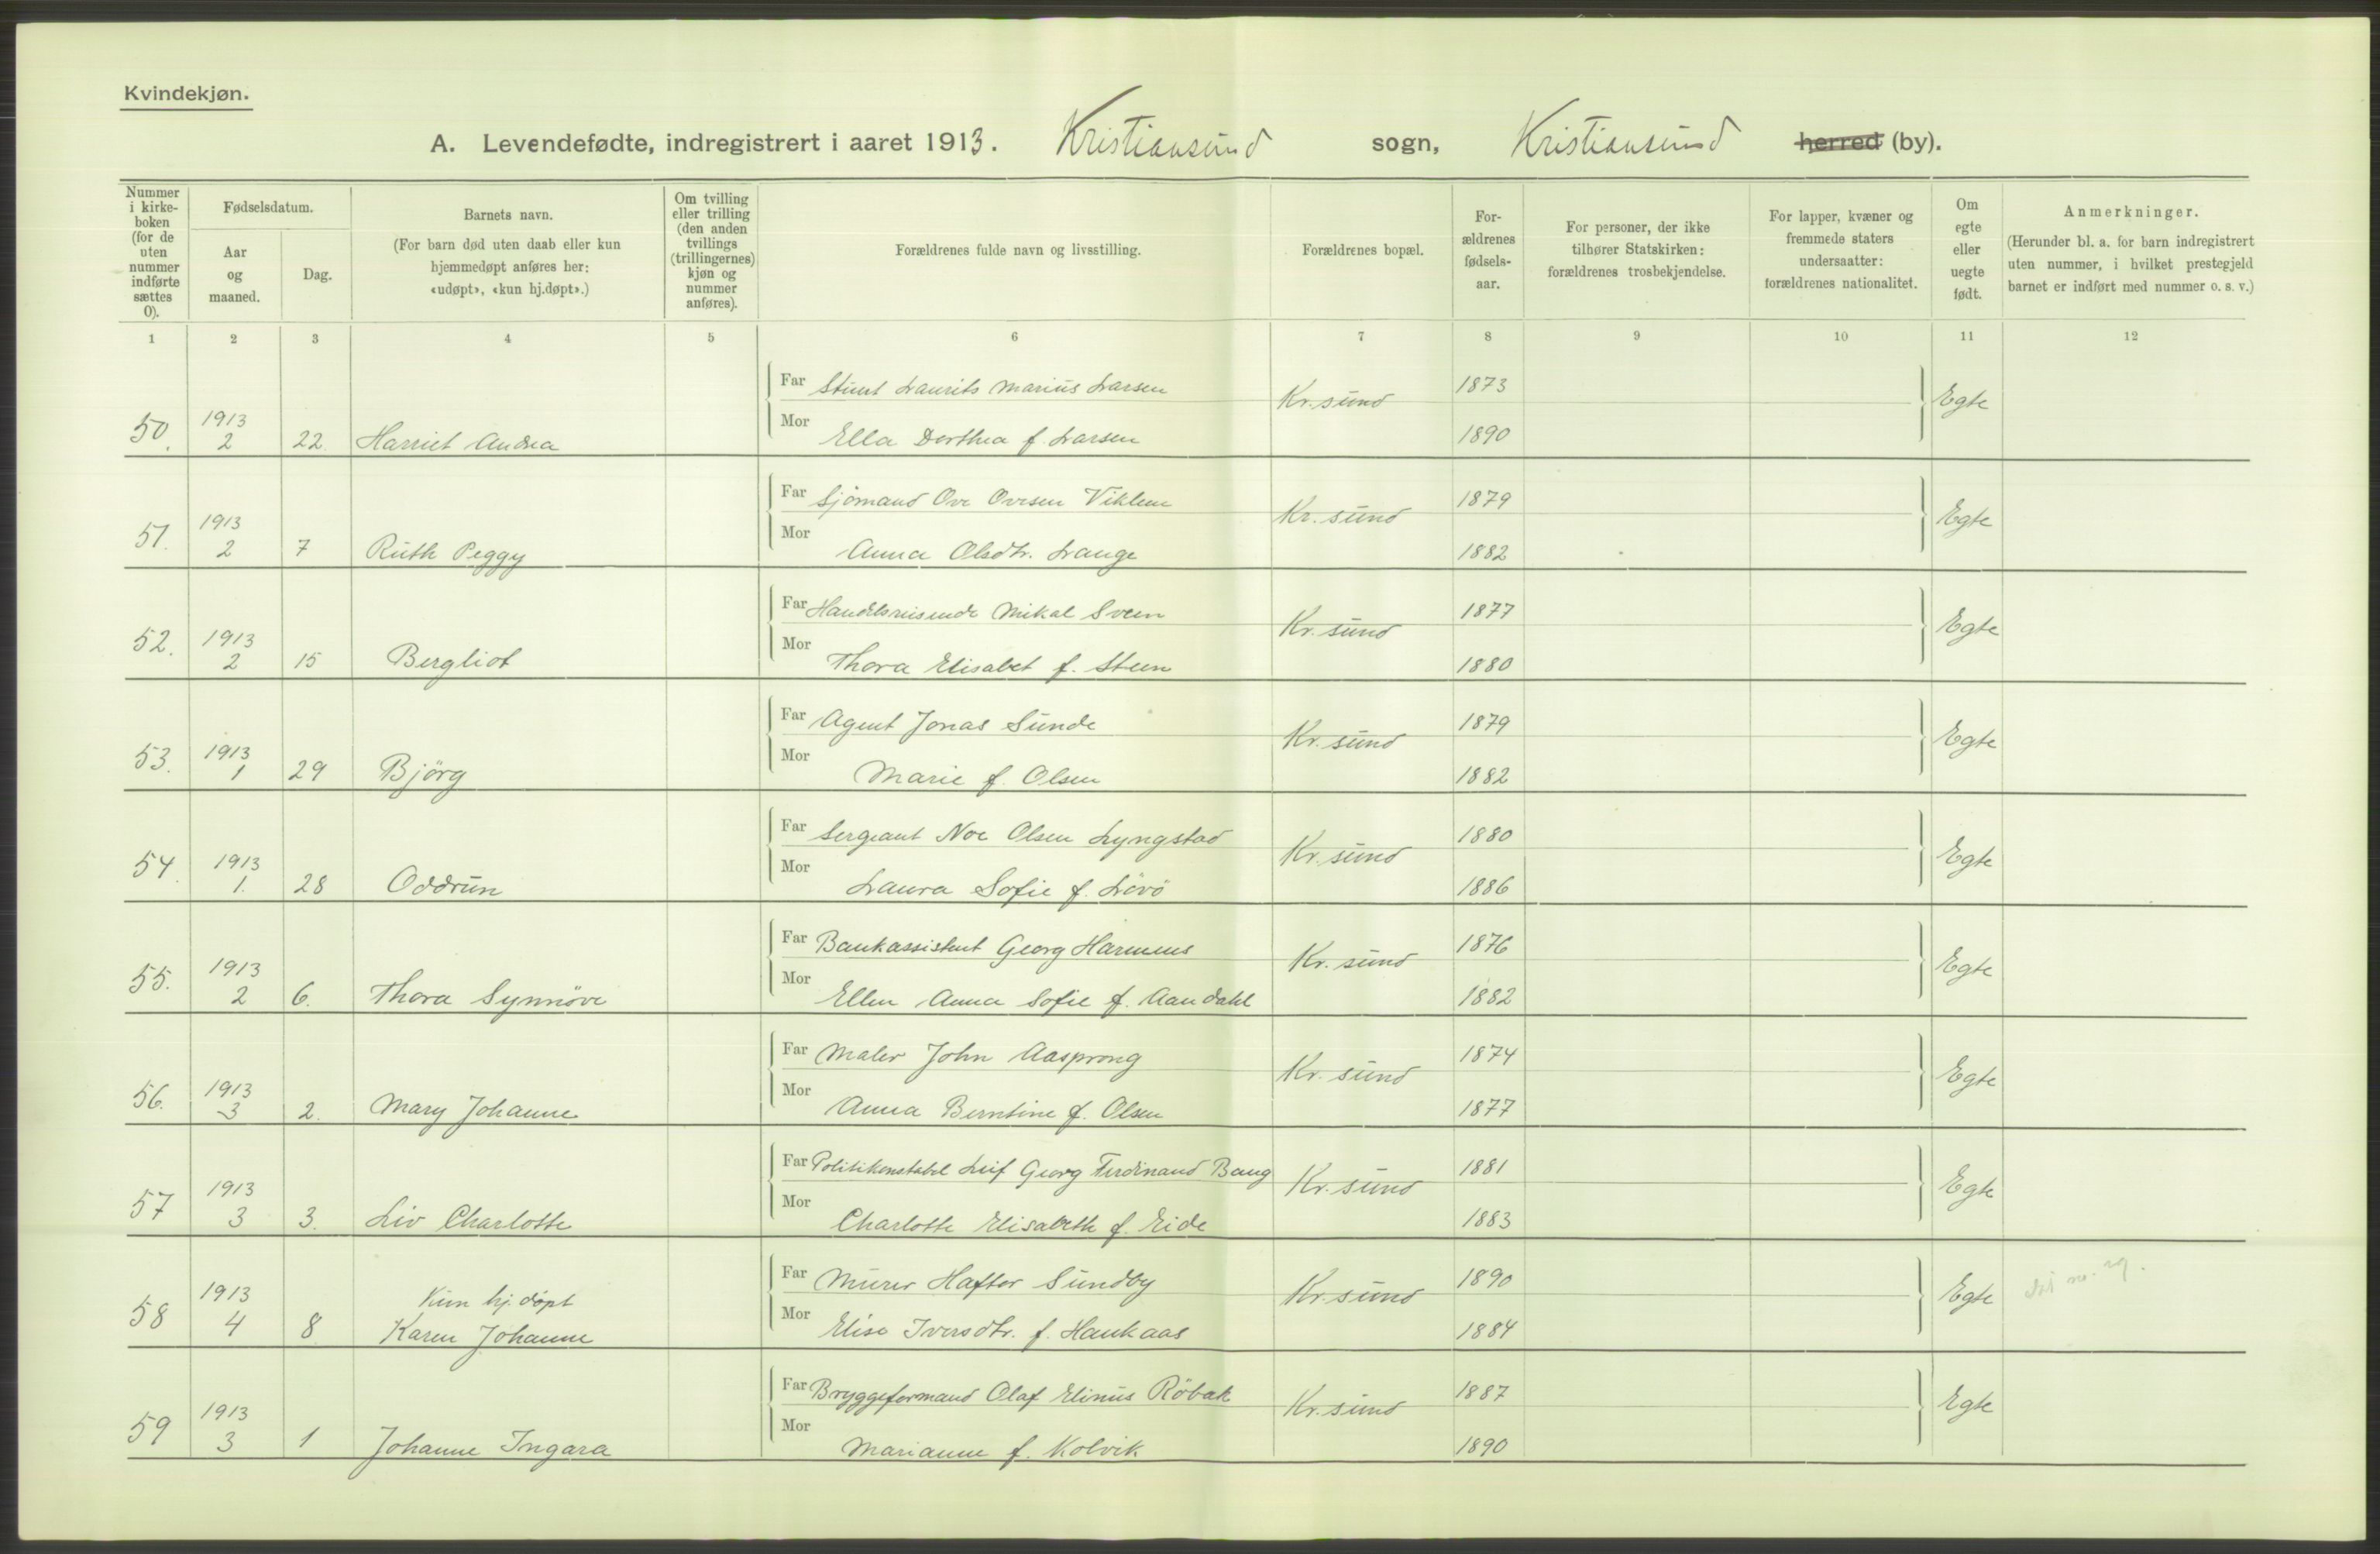 Kvindekjøn.
A. Levendefødte, indregistrert i aaret 1913. Kristiansund sogn, Kristiansund herred (by).
Nummer i kirke-boken (for de uten nummer indførte sættes 0).
Fødselsdatum.
Aar og maaned.
Dag.
Barnets navn.
(For barn død uten daab eller kun hjemmedøpt anføres her: «udøpt», «kun hj.døpt».)
Om tvilling eller trilling (den anden tvillings (trillingernes) kjøn og nummer anføres).
Forældrenes fulde navn og livsstilling.
Forældrenes bopæl.
For-ældrenes fødsels-aar.
For personer, der ikke tilhører Statskirken: forældrenes trosbekjendelse.
For lapper, kvæner og fremmede staters undersaatter: forældrenes nationalitet.
Om egte eller uegte født.
Anmerkninger.
(Herunder bl. a. for barn indregistrert uten nummer, i hvilket prestegjeld barnet er indført med nummer o. s. v.)
1 2 3 4 5 6 7 8 9 10 11 12
Far Stuert Laurits Marius Larsen Kr.sund 1873 Egte
50. 1913 2 22. Harriet Andrea Mor Ella Dorthea f. Larsen 1890
Far Sjömand Ove Ovesen Viklem Kr.sund 1879 Egte
51. 1913 2 7 Ruth Peggy Mor Anna Olsdtr. Lange 1882
Far Handelsreisende Mikal Sveen Kr.sund 1877 Egte
52. 1913 2 15 Bergliot Mor Thora Elisabet f. Steen 1880
Far Agent Jonas Sunde Kr.sund 1879 Egte
53. 1913 1 29 Björg Mor Marie f. Olsen 1882
Far Sergeant Noe Olsen Lyngstad Kr.sund 1880 Egte
54. 1913 1. 28 Oddrun Mor Laura Sofie f. Lövö 1886
Far Bankassistent Georg Harmens Kr.sund 1876 Egte
55. 1913 2 6. Thora Synnöve Mor Ellen Anna Sofie f. Aandahl 1882
Far Maler John Aasprong Kr.sund 1874 Egte
56. 1913 3 2. Mary Johanne Mor Anna Berntine f. Olsen 1877
Far Politikonstabel Leif Georg Ferdinand Bang Kr.sund 1881 Egte
57 1913 3 3. Liv Charlotte Mor Charlotte Elisabeth f. Eide 1883
Far Murer Haftor Sundby Kr.sund 1890 Egte
58 1913 4 8 Kun hj. døpt Karen Johanne Mor Elise Iversdtr. f. Haukaas 1884
Far Bryggeformand Olaf Elinus Röbak Kr.sund 1887 Egte
59 1913 3 1 Johanne Ingara Mor Marianne f. Kolvik 1890